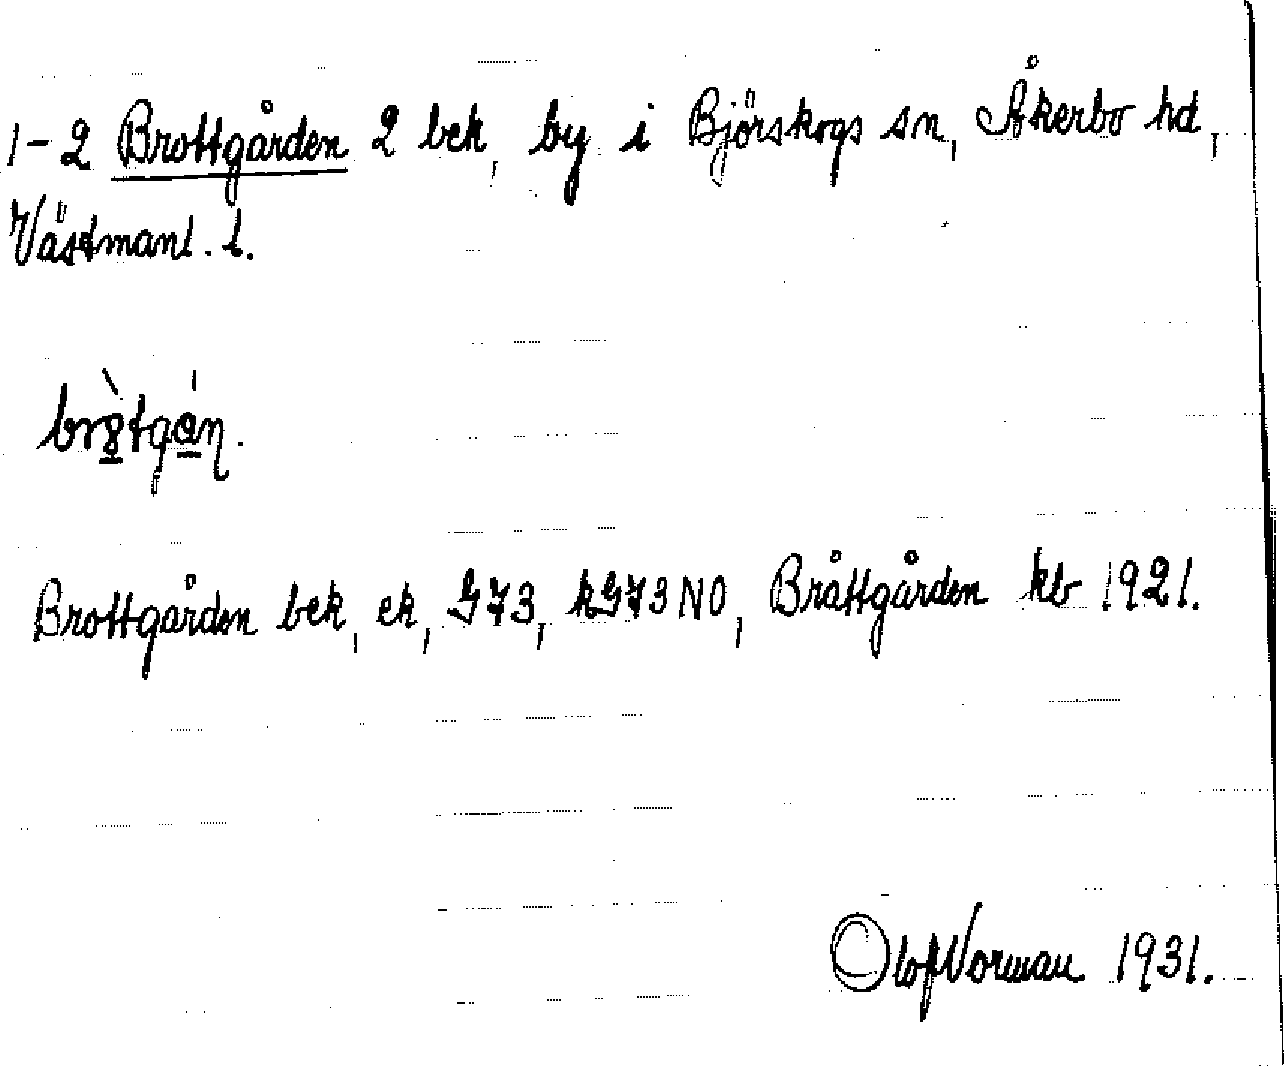 1-2 Brottgården 2 bek, by i Björskogs sn, Åkerbo hd,
Västmanl. l.
Brottgården bek, ek, G73, kG73NO, Bråttgården kb 1921.
Olof Norman 1931.